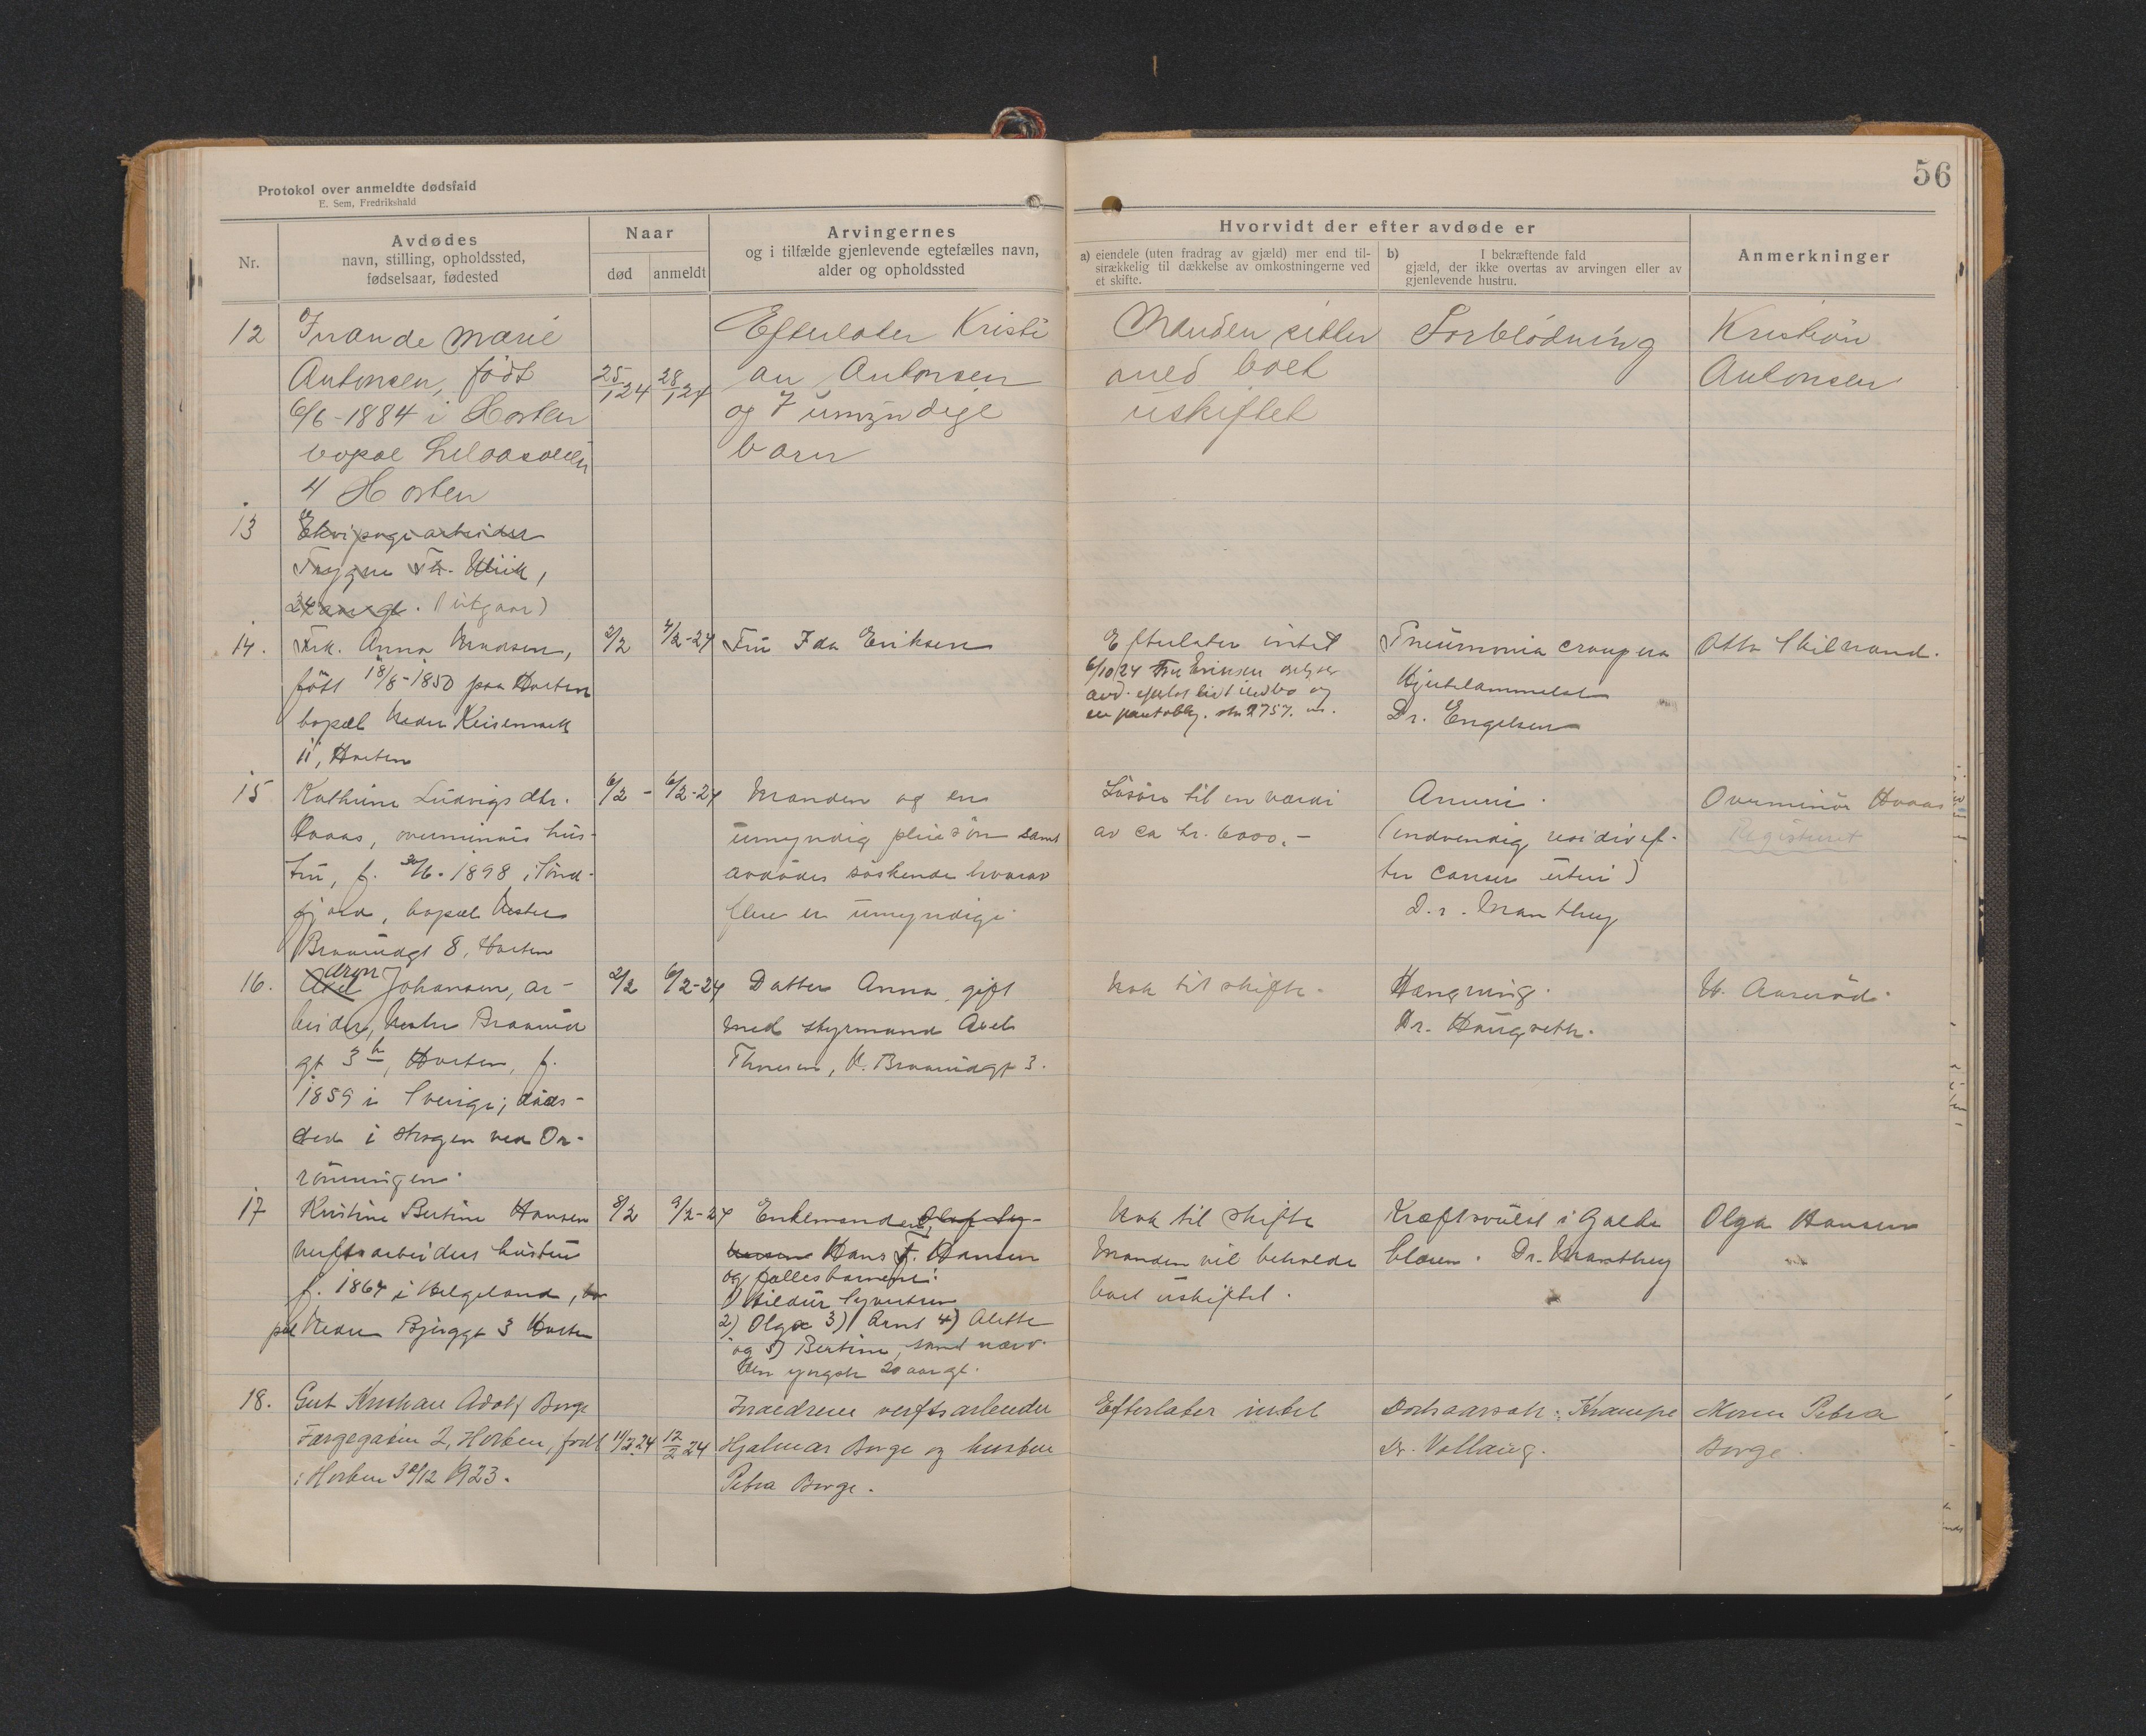 56
Protokol over anmeldte dødsfald
E. Sem, Fredrikshald
Nr.
Avdødes
navn, stilling, opholdssted,
fødselsaar, fødested
Naar
død
anmeldt
Arvingernes
og i tilfælde gjenlevende egtefælles navn,
alder og opholdssted
Hvorvidt der efter avdøde er
a) eiendele (uten fradrag av gjæld) mer end til-
strækkelig til dækkelse av omkostningerne ved
et skifte.
b) I bekræftende fald
gjæld, der ikke overtas av arvingen eller av
gjenlevende hustru.
Anmerkninger
12
Marie
Antonsen, født
6/6-1884 i Horten
bopæl
4 Horten
25/1 24
28/1 24
Efterlater Kristi
an Antonsen
og 7 umyndige
barn
Manden sitter
med boet
uskiftet
Forblødning
Kristian
Antonsen
13
Ekvipagearbeider
Trygve Th.
24 aar gl. (utgaar)
14.
Frk. Anna Madsen,
født 18/8-1850 paa Horten
bopæl Nedre Keisemark
11, Horten
2/2
4/2-24
Fru Ida Eriksen
Efterlater intet
6/10 24 Fru Eriksen oplyser
avd. efterlot litt indbo og
en pantoblig. stor 2757. kr.
Pneumonia crouposa
Hjertelammelse
Dr. Engelsen
Otto
15
Kathrine Ludvigsdtr.
Hovas, overminørs hus-
tru, f. 30/6-1898 i Sønd-
fjord, bopæl Vestre
Braarudgt 8, Horten
6/2 -
6/2-24
Manden og en
umyndig pleiesøn samt
avdødes søskende hvorav
flere er umyndige
Løsøre til en værdi
av ca kr. 6000.-
Anuri.
(indvendig residiv ef-
ter cancer uteri)
Dr. Manthey
Overminør Hovas
Registrert
16.
Axel Aron Johansen, ar-
beider, Vestre Braarud
gt 3 b, Horten, f.
1859 i Sverige; døds-
sted i skogen ved Or-
rønningen.
2/2
6/2-24
Datter Anna, gift
med styrmand Axel
Thoresen, V. Braarudgt 3.
Nok til skifte.
Hængning.
Dr. Haugseth.
17
Kristine Bertine Hansen
verftsarbeiders hustru
f. 1864 i Helgeland, bo-
pæl Nedre Bjerggt 3 Horten
8/2
9/2-24
Enkemanden, Olaf Sy-
Hans J. Hansen
og fællesbarnene:
1) Hildur Syvertsen
2) Olga 3) Arnt 4) Alette
og 5) Bertine, samt nævr.
den yngste 20 aar gl.
Nok til skifte
Manden vil beholde
boet uskiftet.
Kræftsvulst i Galde
blæren. Dr. Manthey
Olga Hansen
18.
Gut Kristian Adolf Borge
Færgegaten 2, Horten, født
i Horten 30/12 1923.
11/2 24
12/2 24
Foraldrene verftsarbeider
Hjalmar Borge og hustru
Petra Borge.
Efterlater intet
Dødsaarsak: Krampe
Dr. Vollaug.
Moren Petra
Borge.